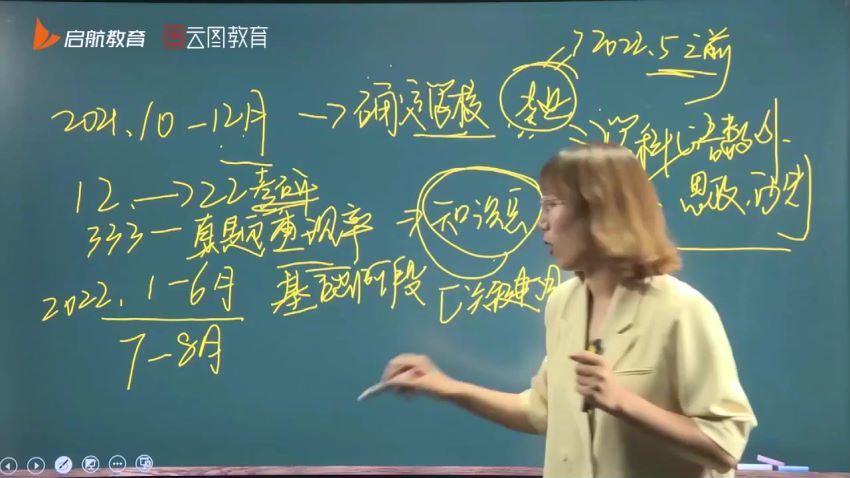 启航教育 云图教育
→2022.5之前
2021.10-12月 → 确定院校 专业
12.→22考研
333-真题重现率 → 知识点
思政
2022.1-6月 基础阶段
7-8月